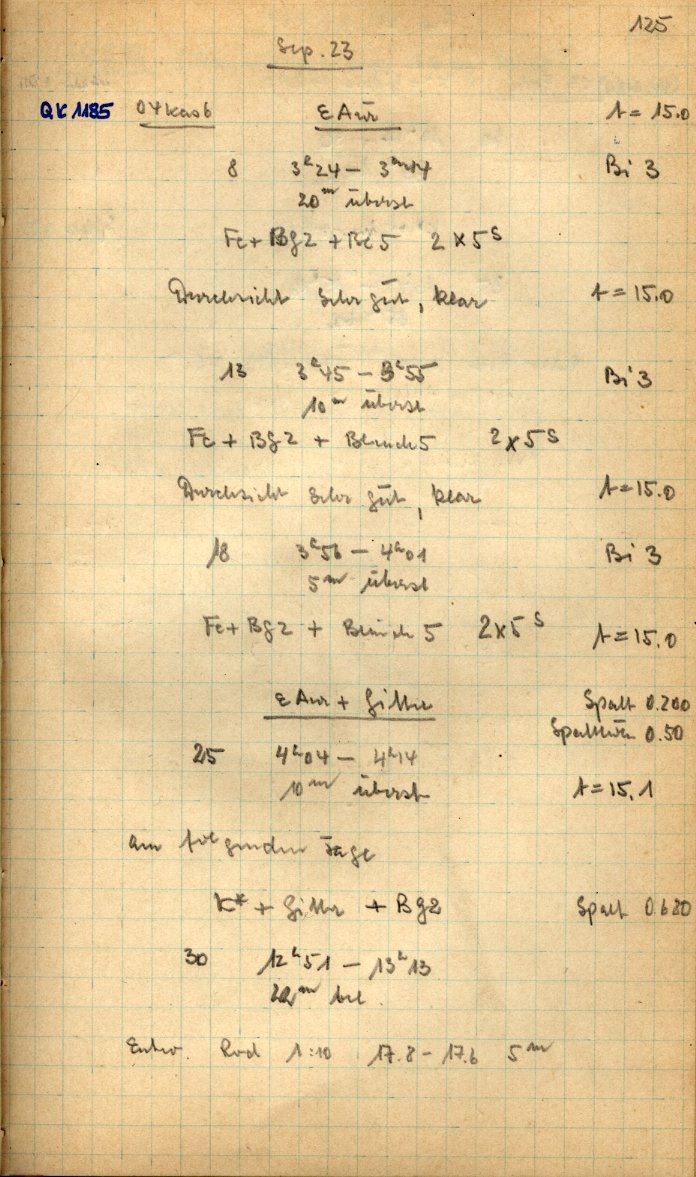 125
Sep. 23
QK 1185 04Kas6 ε Aur t = 15.0
8 3ʰ24 – 3ʰ44 Bi 3
20ᵐ überst
Fe + Bg2 + Be 5 2 x 5ˢ
Durchsicht sehr gut, klar t = 15.0
13 3ʰ45 – 3ʰ55 Bi 3
10ᵐ überst
Fe + Bg2 + Blende 5 2 x 5ˢ
Durchsicht sehr gut, klar t = 15.0
18 3ʰ56 – 4ʰ01 Bi 3
5ᵐ überst
Fe + Bg2 + Blende 5 2 x 5ˢ t = 15.0
ε Aur + Gitter Spalt 0.200
0.50
25 4ʰ04 – 4ʰ14
10ᵐ überst t = 15.1
am folgenden Tage
K* + Gitter + Bg2 Spalt 0.620
30 12ʰ51 – 13ʰ13
22ᵐ bel.
Entw. Rod 1:10 17.8 – 17.6 5ᵐ